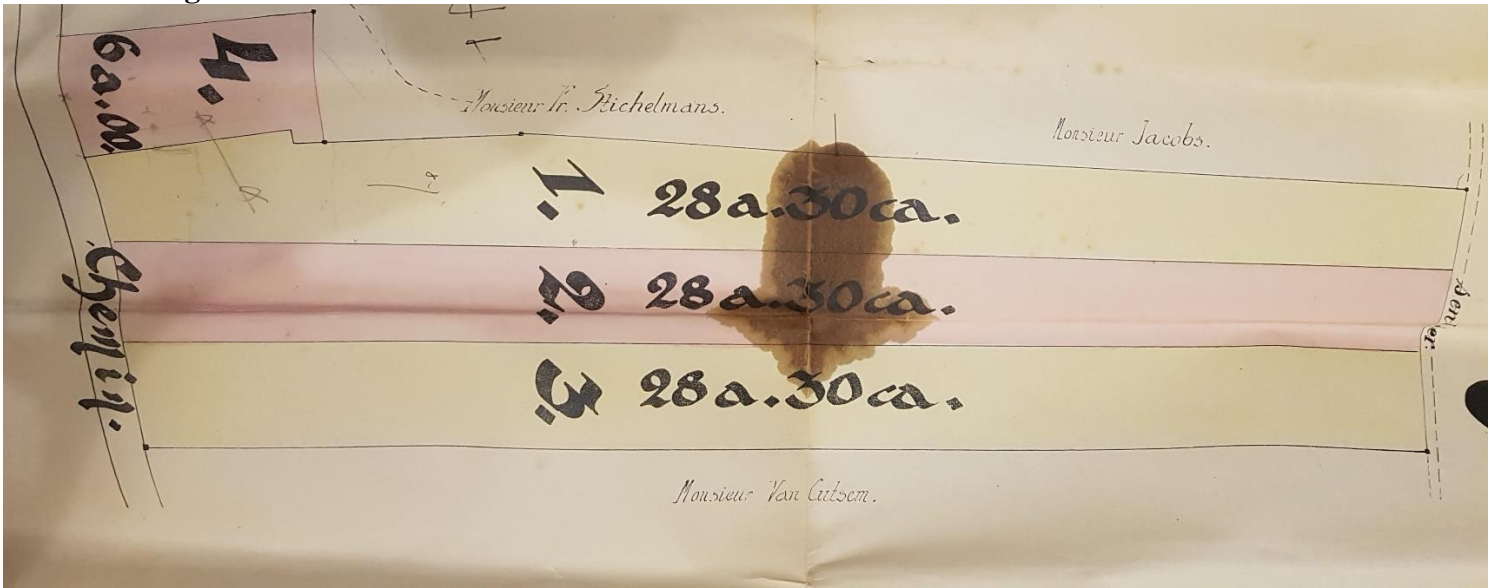 4.
6 a. 00.
Monsieur Fr. Stichelmans.
Monsieur Jacobs.
1. 28 a. 30 ca.
2. 28 a. 30 ca.
3. 28 a. 30 ca.
Chemin.
Sentier.
Monsieur Van Cutsem.